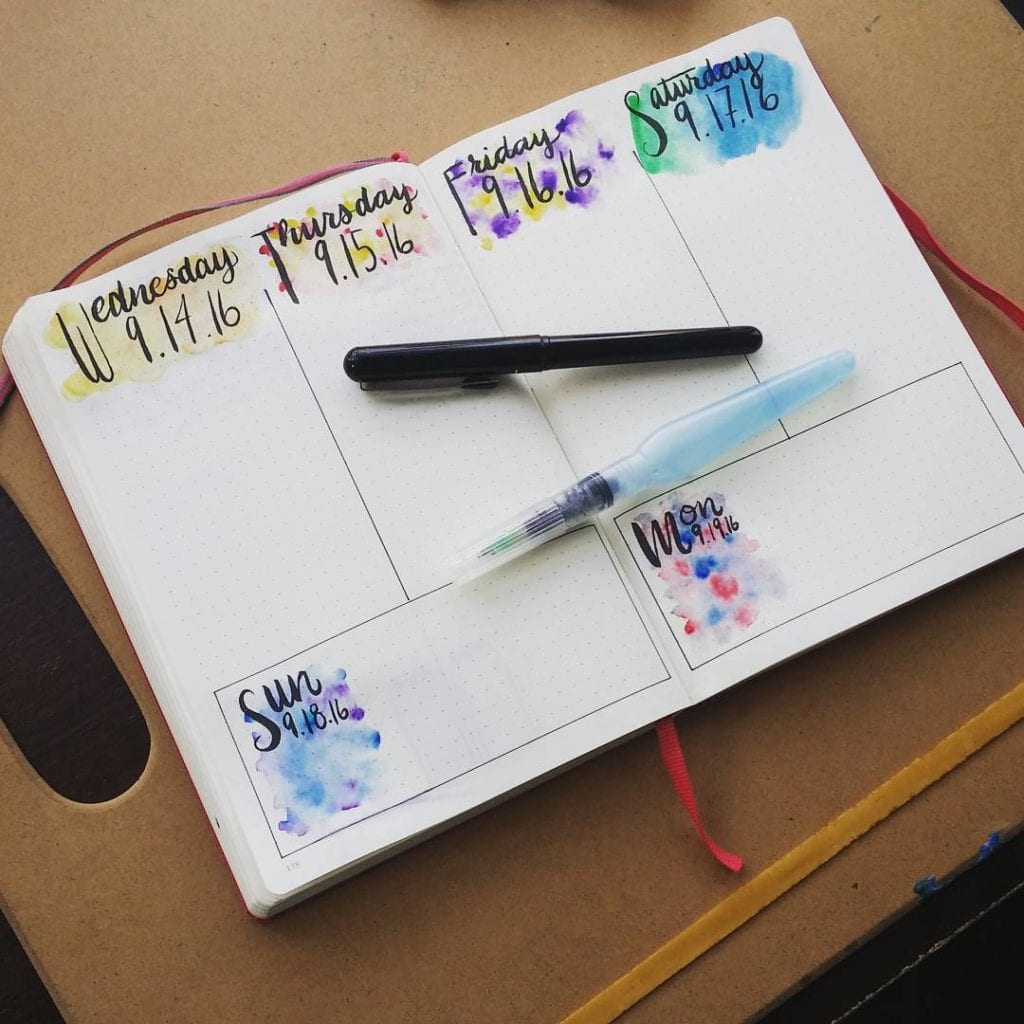 Wednesday
9.14.16
Thursday
9.15.16
Friday
9.16.16
Saturday
9.17.16
Sun
9.18.16
Mon
9.19.16
138